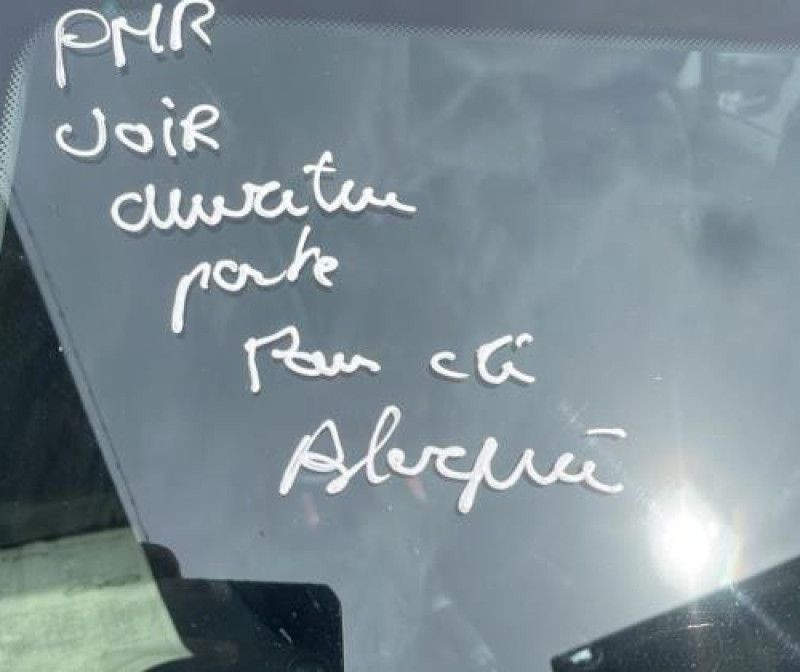 PMR
VOIR
ouverture
porte
Pour clé
Bloquée